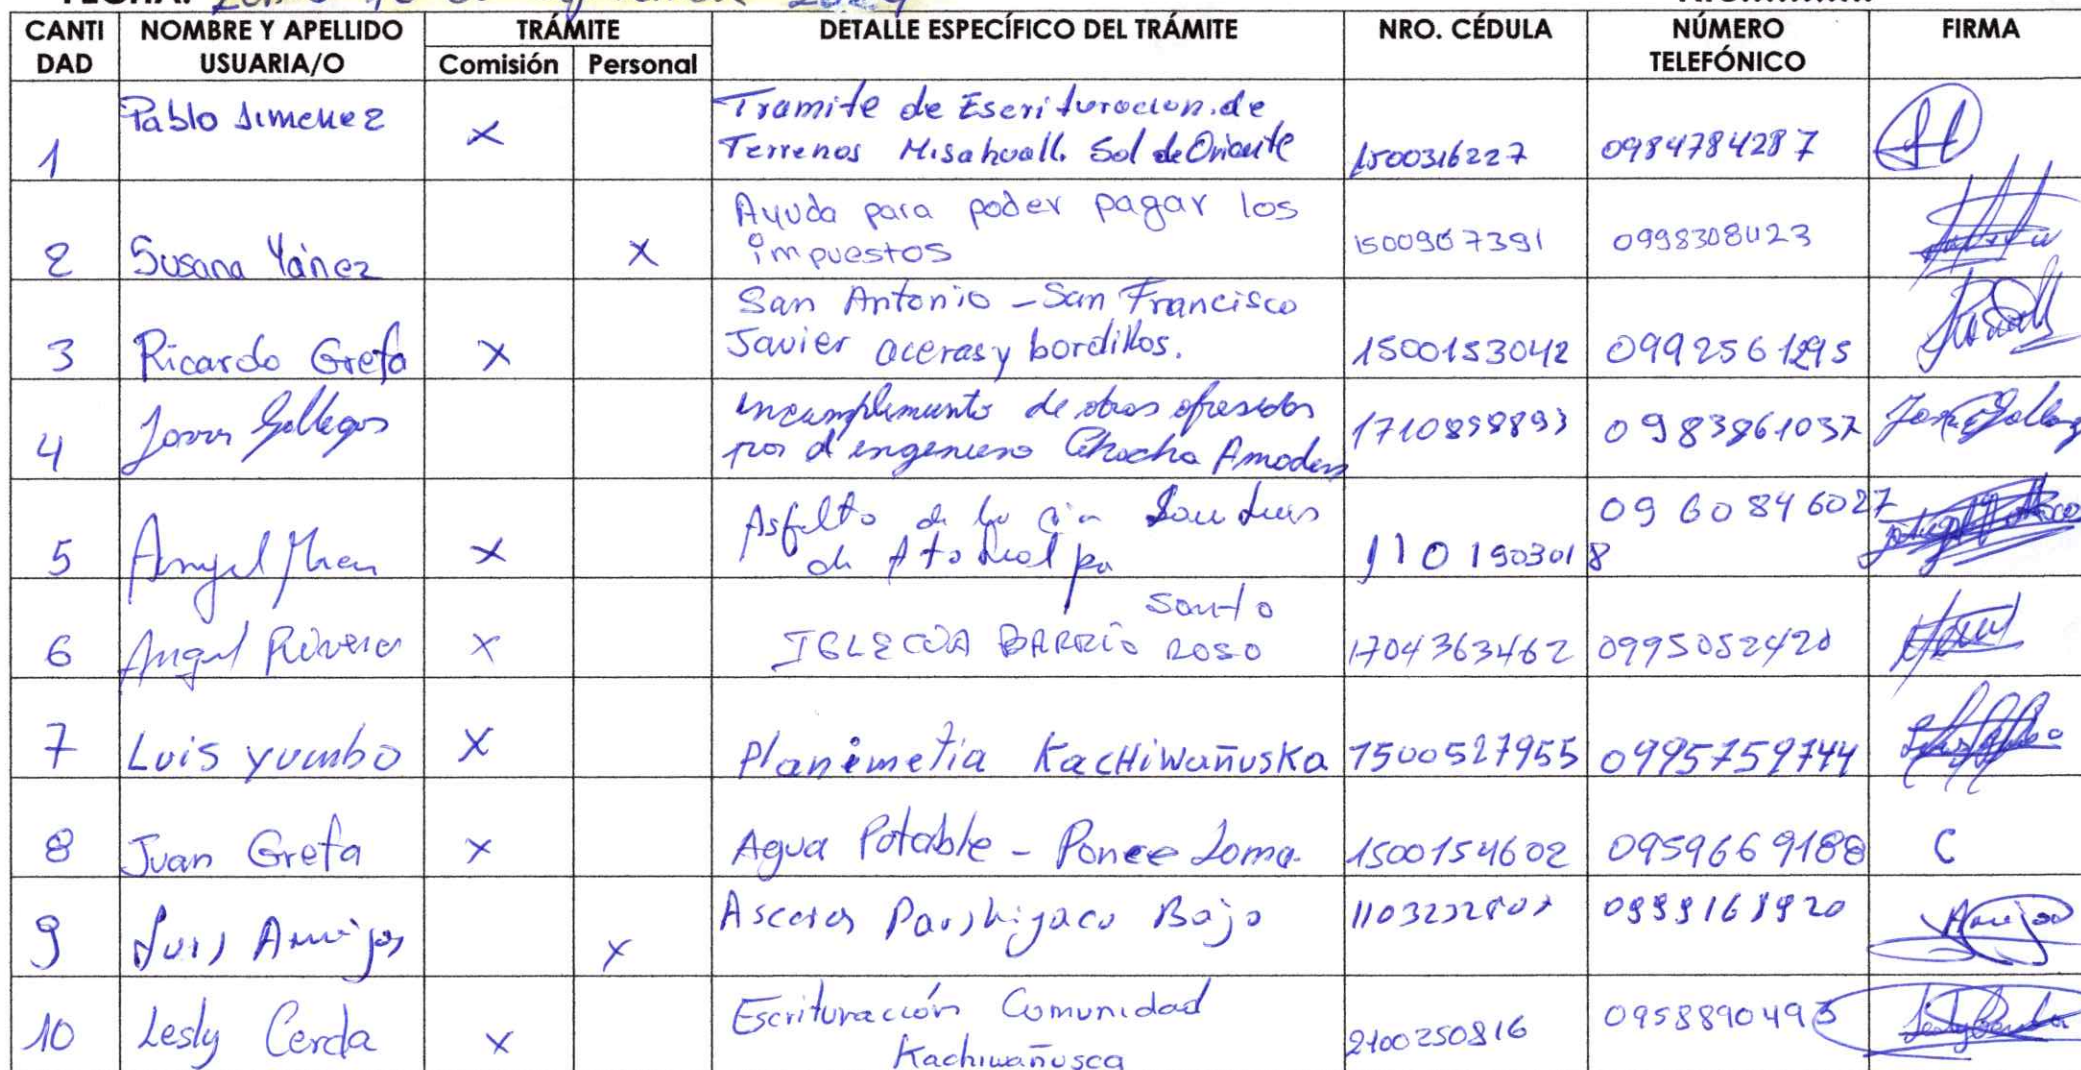 FECHA:
CANTIDAD NOMBRE Y APELLIDO USUARIA/O TRÁMITE Comisión Personal DETALLE ESPECÍFICO DEL TRÁMITE NRO. CÉDULA NÚMERO TELEFÓNICO FIRMA
1 Pablo Jimenez X Tramite de Escrituracion de
Terrenos Misahualli Sol de Oriente 1500316227 0984784287
2 Susana Yánez X Ayuda para poder pagar los
impuestos 1500907391 0998308423
3 Ricardo Grefa X San Antonio - San Francisco
Javier aceras y bordillos. 1500153042 0992561295
4 Gallegos Incumplimiento de obras
por ingeniero 0983961037
5 Angel X Asfalto
1101903018 0960846027
6 Angel Rivera X Santo
BARRIO 1704363462 0995052420
7 Luis Yumbo X Planimetia KacHiwañusKa 1500527955 0995759744
8 Juan Grefa X Agua Potable - Ponce Loma. 1500154602 0959669188 C
9 Luis X Bajo
10 Lesly Cerda X Escrituración Comunidad
Kachiwañusca 2100250816 0958890493